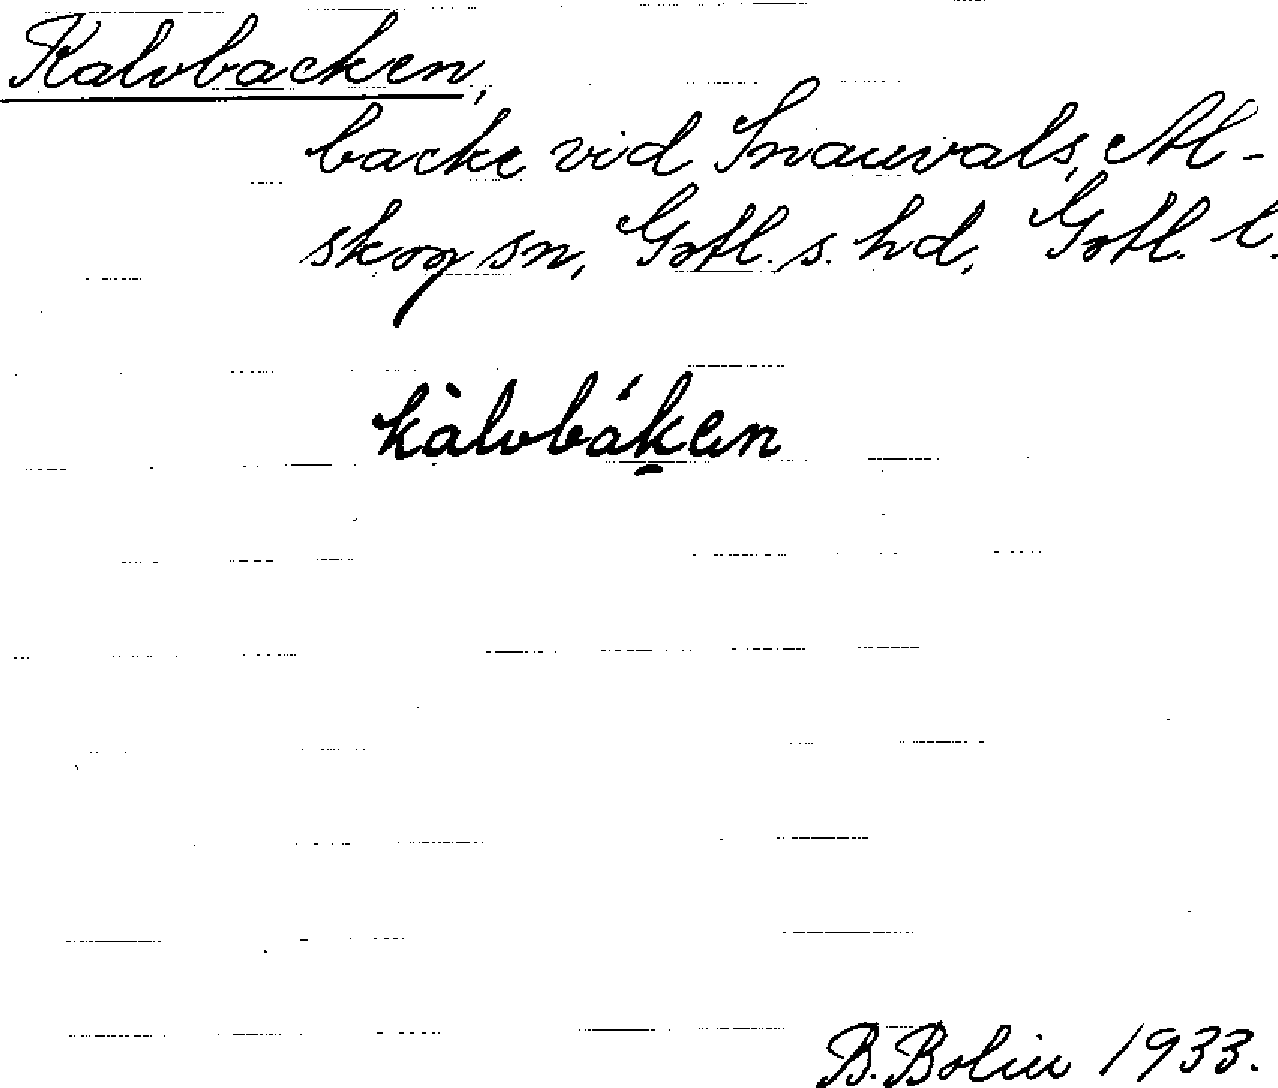 Kalvbacken,
backe vid Snauvals, Al-
skog sn, Gotl. s. hd, Gotl. l.
kàlvbák̠en
B. Bolin 1933.